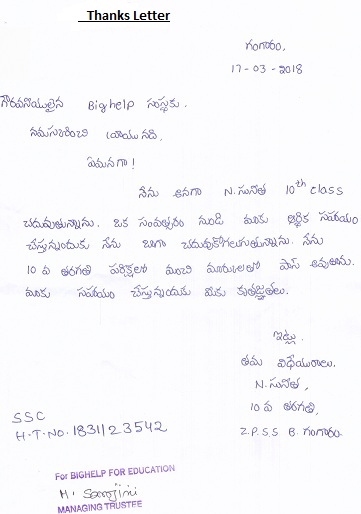 Thanks Letter
గంగారం,
17-03-2018
గౌరవనీయులైన Bighelp సంస్థకు.
నమస్కరించి వ్రాయునది,
ఏమనగా!
నేను అనగా N. సునీత 10th class
చదువుతున్నాను. ఒక సంవత్సరం నుండి మాకు ఆర్థిక సహాయం
చేస్తున్నందుకు నేను బాగా చదువుకోగలుగుతున్నాను. నేను
10 వ తరగతి పరీక్షలో మంచి మార్కులతో పాస్ అవుతాను.
మాకు సహాయం చేస్తున్నందుకు మీకు కృతజ్ఞతలు.
ఇట్లు
తమ విధేయురాలు.
N. సునీత,
10 వ తరగతి,
Z.P.S.S B. గంగారం.
SSC
H.T-NO. 1831123542
For BIGHELP FOR EDUCATION
H. Sarojini
MANAGING TRUSTEE